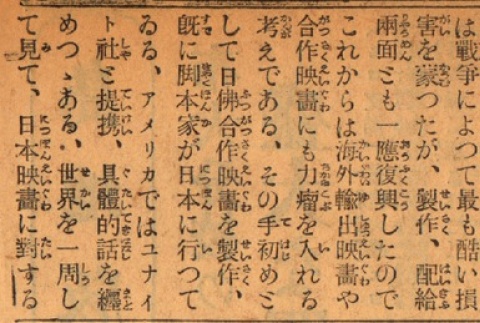 は戰爭によつて最も酷い損
害を蒙つたが、製作、配給
兩面とも一應復興したので
これからは海外輸出映畫や
合作映畫にも力瘤を入れる
考えである。その手初めと
して日佛合作映畫を製作、
旣に脚本家が日本に行つて
ゐる、アメリカではユナイ
ト社と提携、具體的話を纒
めつゝある、世界を一周し
て見て、日本映畫に對する